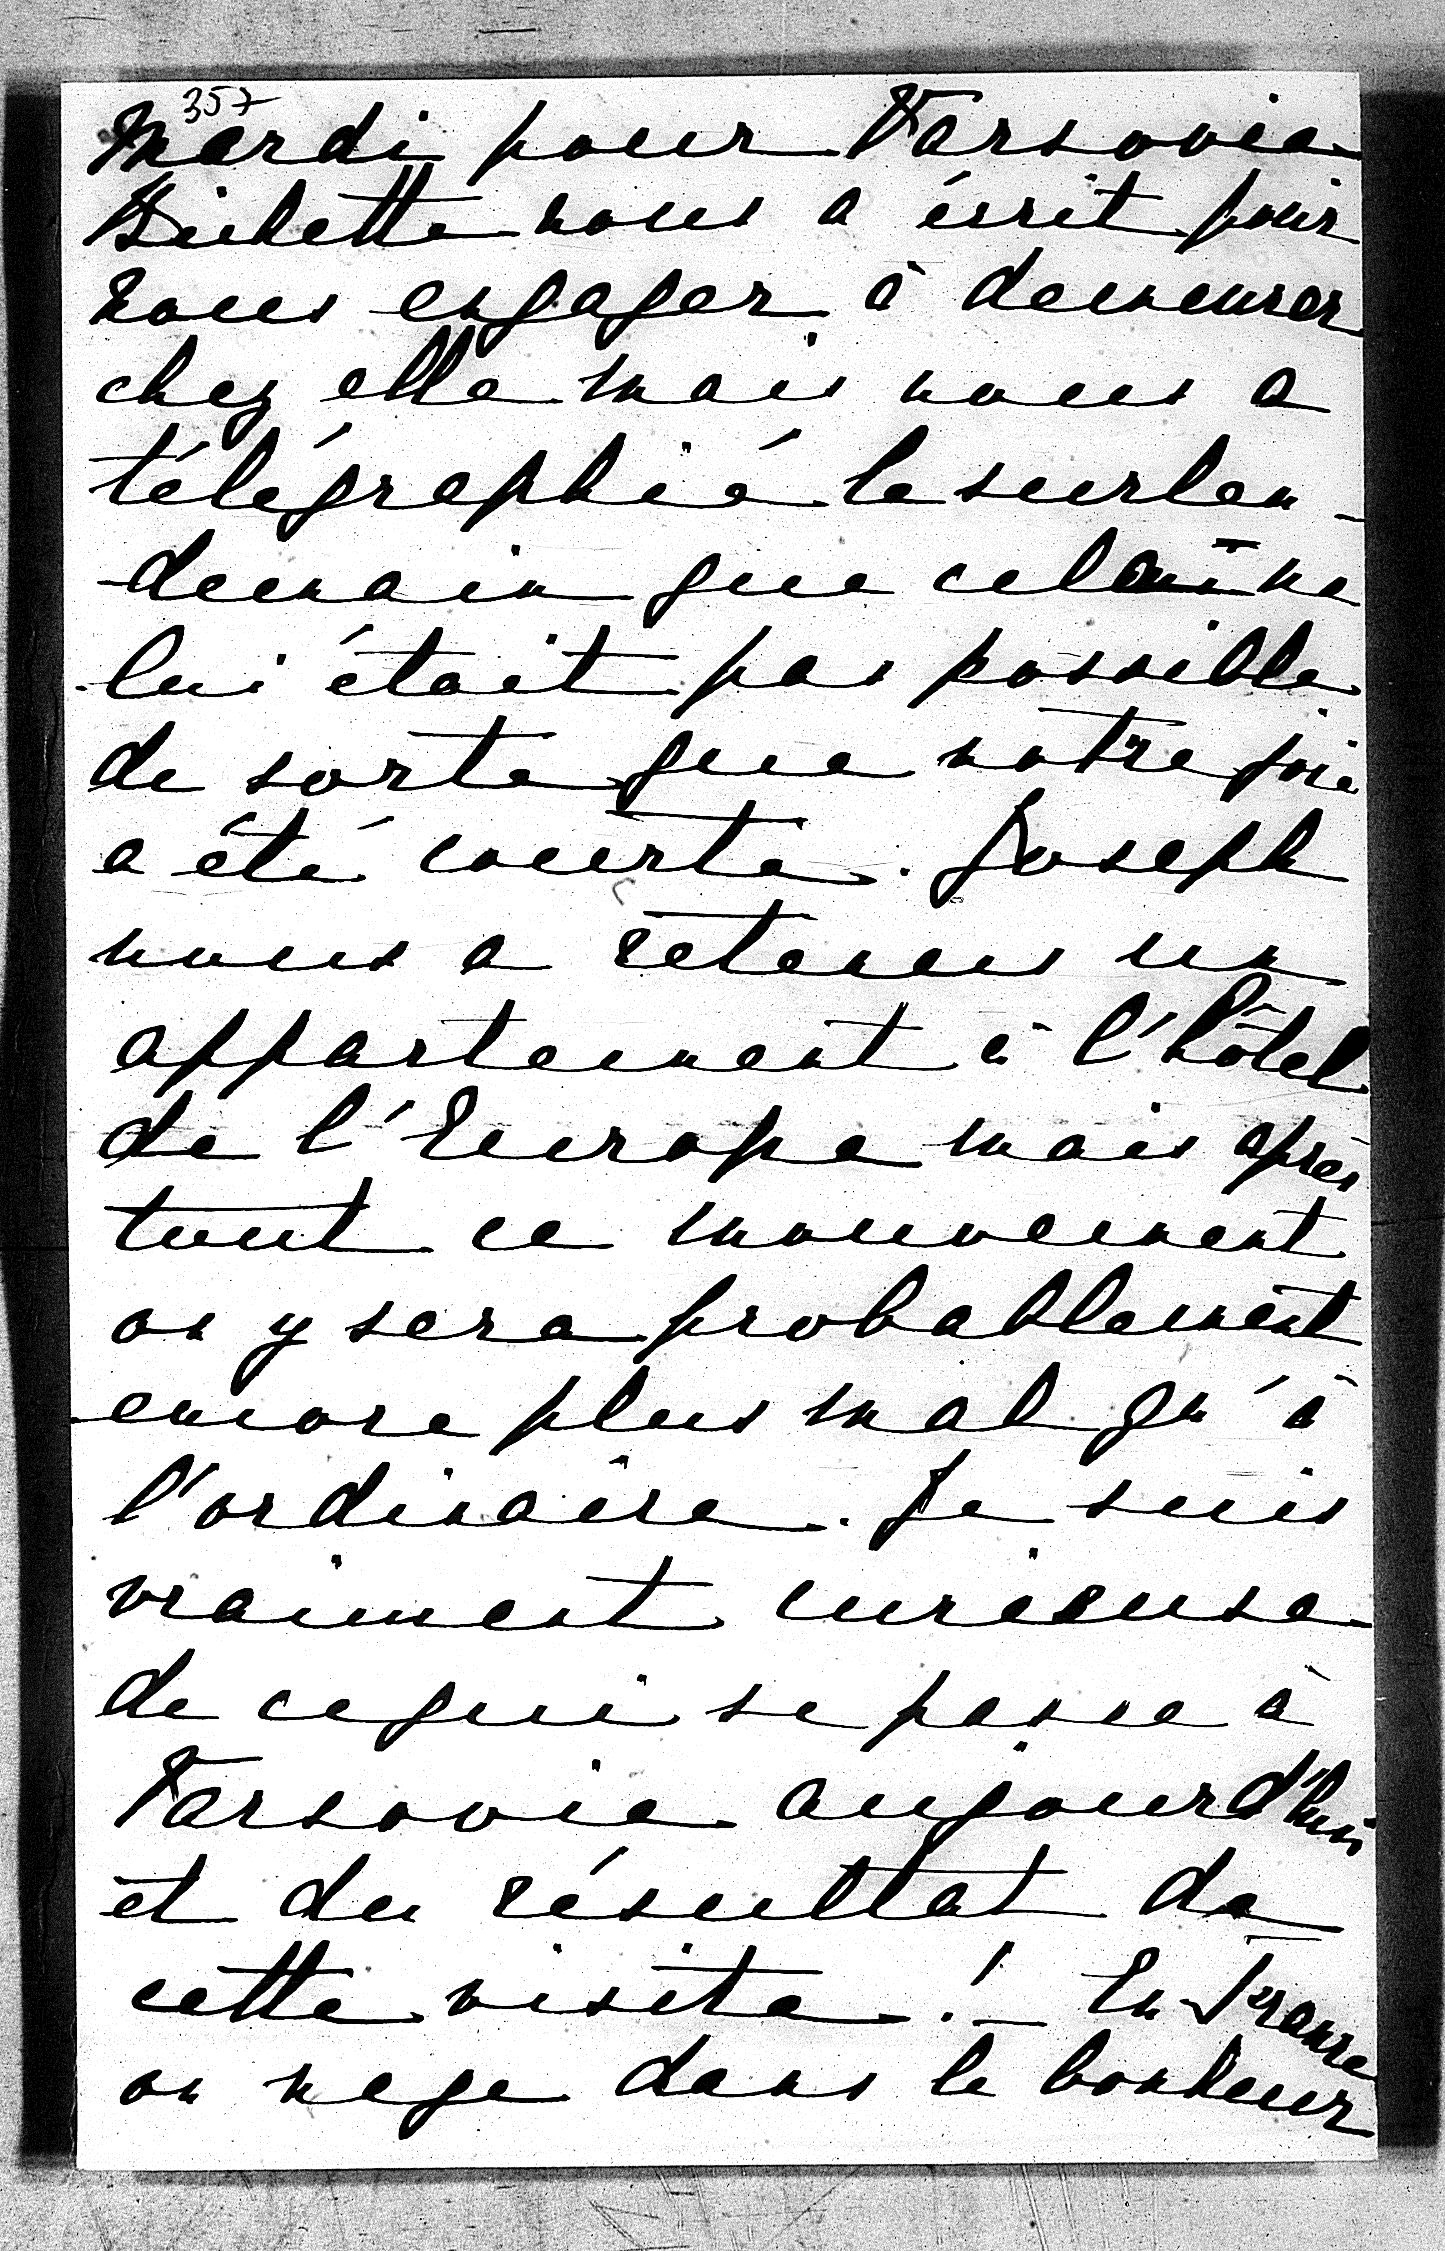 357
Mardi pour Varsovie
Bichette nous a écrit pour
nous engager à demeurer
chez elle mais nous a
télégraphié le surlen-
demain que cela ne
lui était pas possible
de sorte que notre joie
a été courte. Joseph
nous a retenus un
appartement à l'hôtel
de l'Europe mais après
tout ce mouvement
on y sera probablement
encore plus mal qu'à
l'ordinaire. Je suis
vraiment curieuse
de ce qui se passe à
Varsovie aujourd'hui
et du résultat de
cette visite! — En France
on nage dans le bonheur